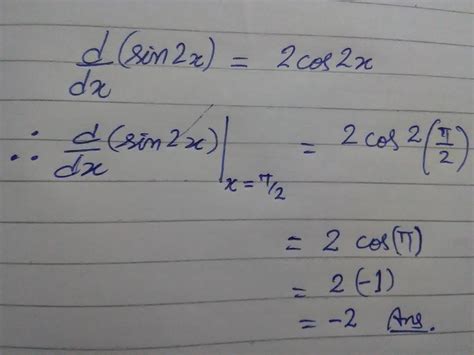 d/dx (sin2x) = 2cos2x
∴ d/dx (sin2x)|x=π/2 = 2cos2(π/2)
= 2 cos(π)
= 2(-1)
= -2 Ans.